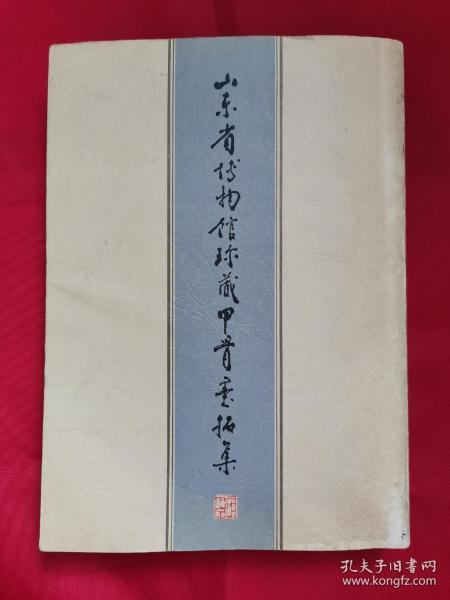 山东省博物馆珍藏甲骨墨拓集
孔夫子旧书网
www.kongfz.com